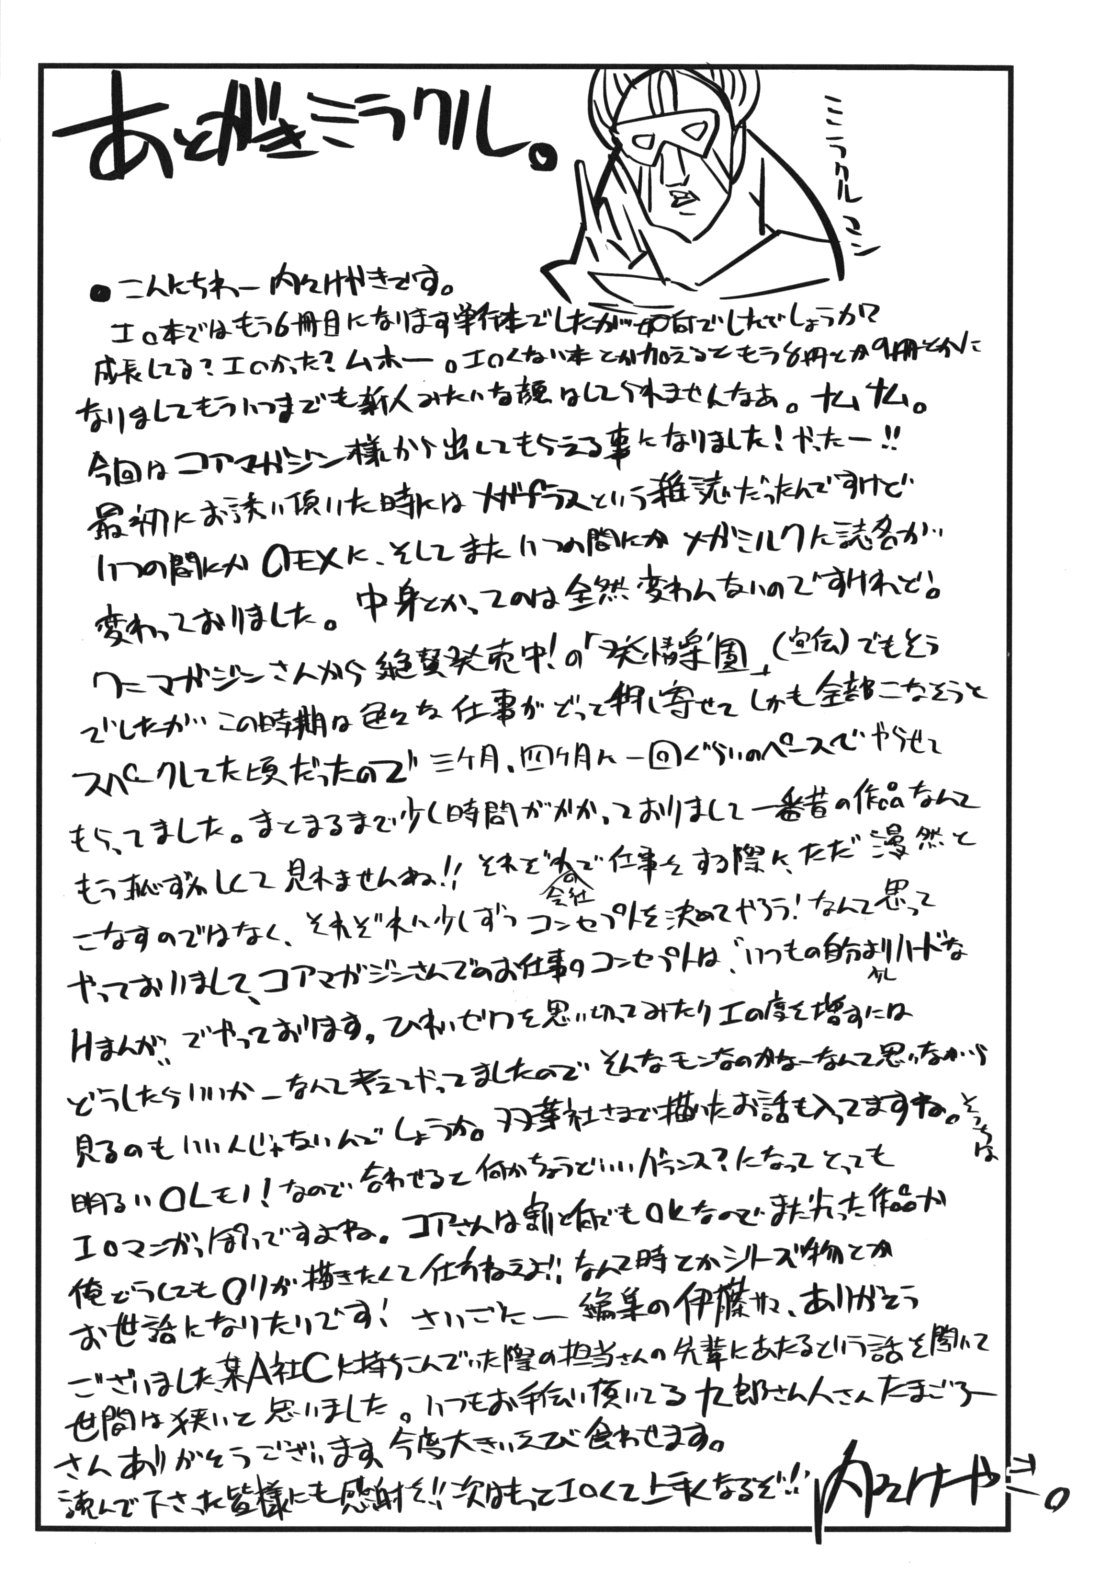 あとがきミラクル。
ミラクルマン
●こんにちわー 内々けやきです。
エロ本ではもう6冊目になります単行本でしたが如何でしたでしょうか?
成長してる?エロかった?ムホー。エロくない本とか加えるともう8冊とか9冊とかに
なりましてもういつまでも新人みたいな顔はしてられませんなあ。ナムナム。
今回はコアマガジン様から出してもらえる事になりました!やったー!!
最初にお誘い頂いた時にはメガプラスという雑誌だったんですけど
いつの間にかOEXに、そしてまたいつの間にかメガミルクに誌名が
変わっておりました。中身とかってのは全然変わんないのですけれど。
ワニマガジンさんから絶賛発売中!の「発情楽園」(宣伝)でもそう
でしたがこの時期は色々な仕事がどって押し寄せてしかも全部こなそうと
スパークしてた頃だったので三ヶ月、四ヶ月に一回ぐらいのペースでやらせて
もらってました。まとまるまで少し時間がかかっておりまして一番昔の作品なんて
もう恥ずかしくて見れませんね!!それぞれの会社で仕事をする際に、ただ漫然と
こなすのではなく、それぞれに少しずつコンセプトを決めてやろう!なんて思って
やっておりまして、コアマガジンさんでのお仕事のコンセプトは、"いつもの自分より少しハードな
Hまんが"でやっております。ひわいゼリフを思い切ってみたりエロ度を増すには
どうしたらいいかーなんて考えてやってましたのでそんなモンなのかなーなんて思いながら
見るのもいいんじゃないんでしょうか。双葉社さまで描いたお話も入ってますね。そっちは
明るいOLモノ!なので合わせると何かちょうどいいバランス?になってとっても
エロマンガっぽいですよね。コアさんは割と何でもOKなのでまた尖った作品が
俺どうしてもロリが描きたくて仕方ねえよ!!なんて時とかシリーズ物とか
お世話になりたいです!さいごにー編集の伊藤サマ、ありがとう
ございました、某A社Cに持ちこんでいた際の担当さんの先輩にあたるという話を聞いて
世間は狭いと思いました。いつもお手伝い頂いてる九郎さん人さんたまごろー
さんありがとうございます、今度大きいえび食わせます。
読んで下さった皆様にも感謝を!!次はもっとエロくて上手くなるぞ!!
内々けやき。